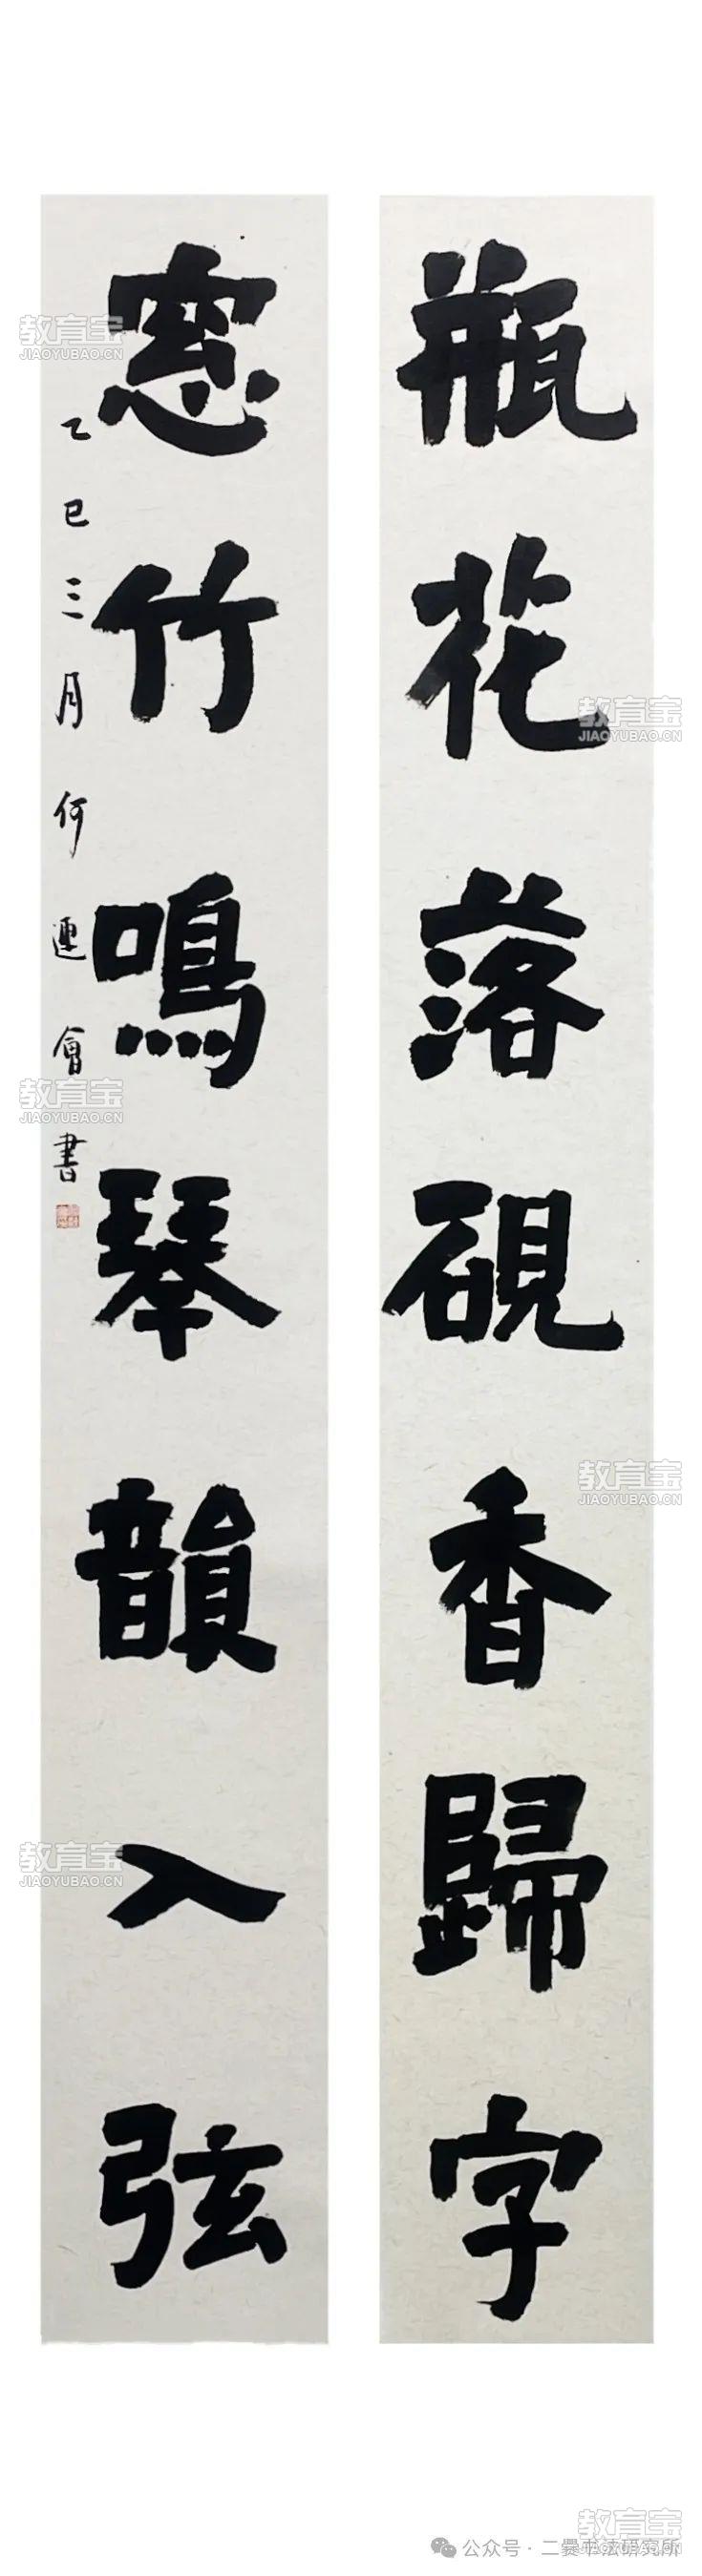 瓶花落硯香歸字
窓竹鳴琴韻入弦
乙巳三月何連會書
教育宝
JIAOYUBAO.CN
教育宝
JIAOYUBAO.CN
教育宝
JIAOYUBAO.CN
教育宝
JIAOYUBAO.CN
教育宝
JIAOYUBAO.CN
教育宝
公众号·二爨书法研究所